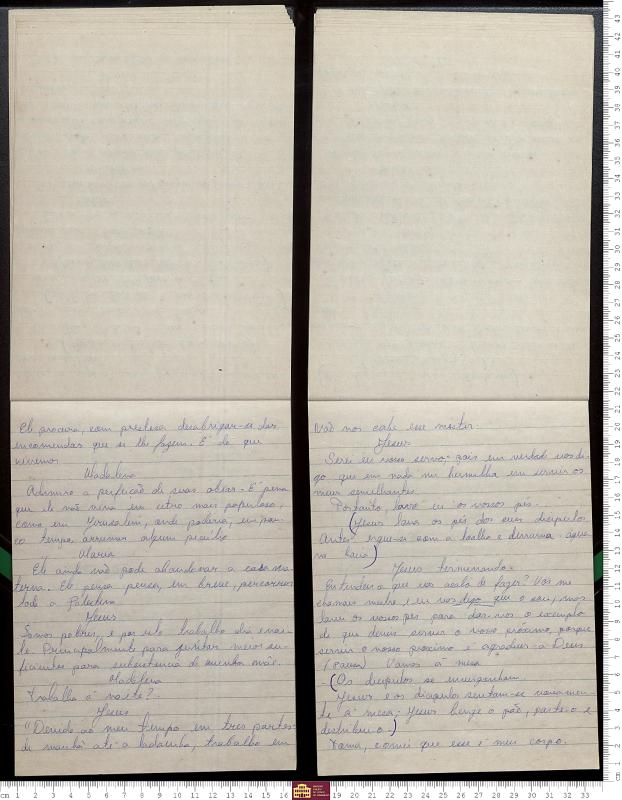 Ele procura, com presteza desobrigar-se das
encomendas que se lhe fazem. É do que
vivemos
Madalena
Admiro a perfeição de suas obras. É pena
que ele não viva em outro mais populoso,
como em Jerusalem, onde poderia, em pou-
co tempo, arrumar algum peculio
Maria
Ele ainda não pode abandonar a casa ma-
terna. Ele pensa, em breve, percorrer
toda a Palestina
Jesus
Somos pobres, e por isto trabalho dia e noi-
te. Principalmente para juntar meios su-
ficientes para subsistencia de minha mãe.
Madalena
Trabalha á noite?
Jesus
"Divido o meu tempo em tres partes:
de manhã até a ladainha, trabalho em
Não nos cabe esse mister.
Jesus
Serei eu vosso servo; pois em verdade vos di-
go que em nada me humilha em servir os
meus semelhantes.
Portanto, lavo eu os vossos pés...
(Jesus lava os pés dos seus discipulos
Antes ergue-se com a toalha e derrama agua
na bacia)
Jesus terminando
Entendeis o que vos acabo de fazer? Vós me
chamais mestre e eu vos digo que o sou, mas
lavei os vossos pés para dar-vos o exemplo
de que deveis servir o vosso próximo, porque
servir o vosso proximo é agradecer a Deus
(Pausa) Vamos á mesa
(Os discipulos se envergonham.
Jesus e os discipulos sentam-se novamen-
te á mesa; Jesus benze o pão, parte-o e
distribui-o)
Tomai, comei que esse é meu corpo.